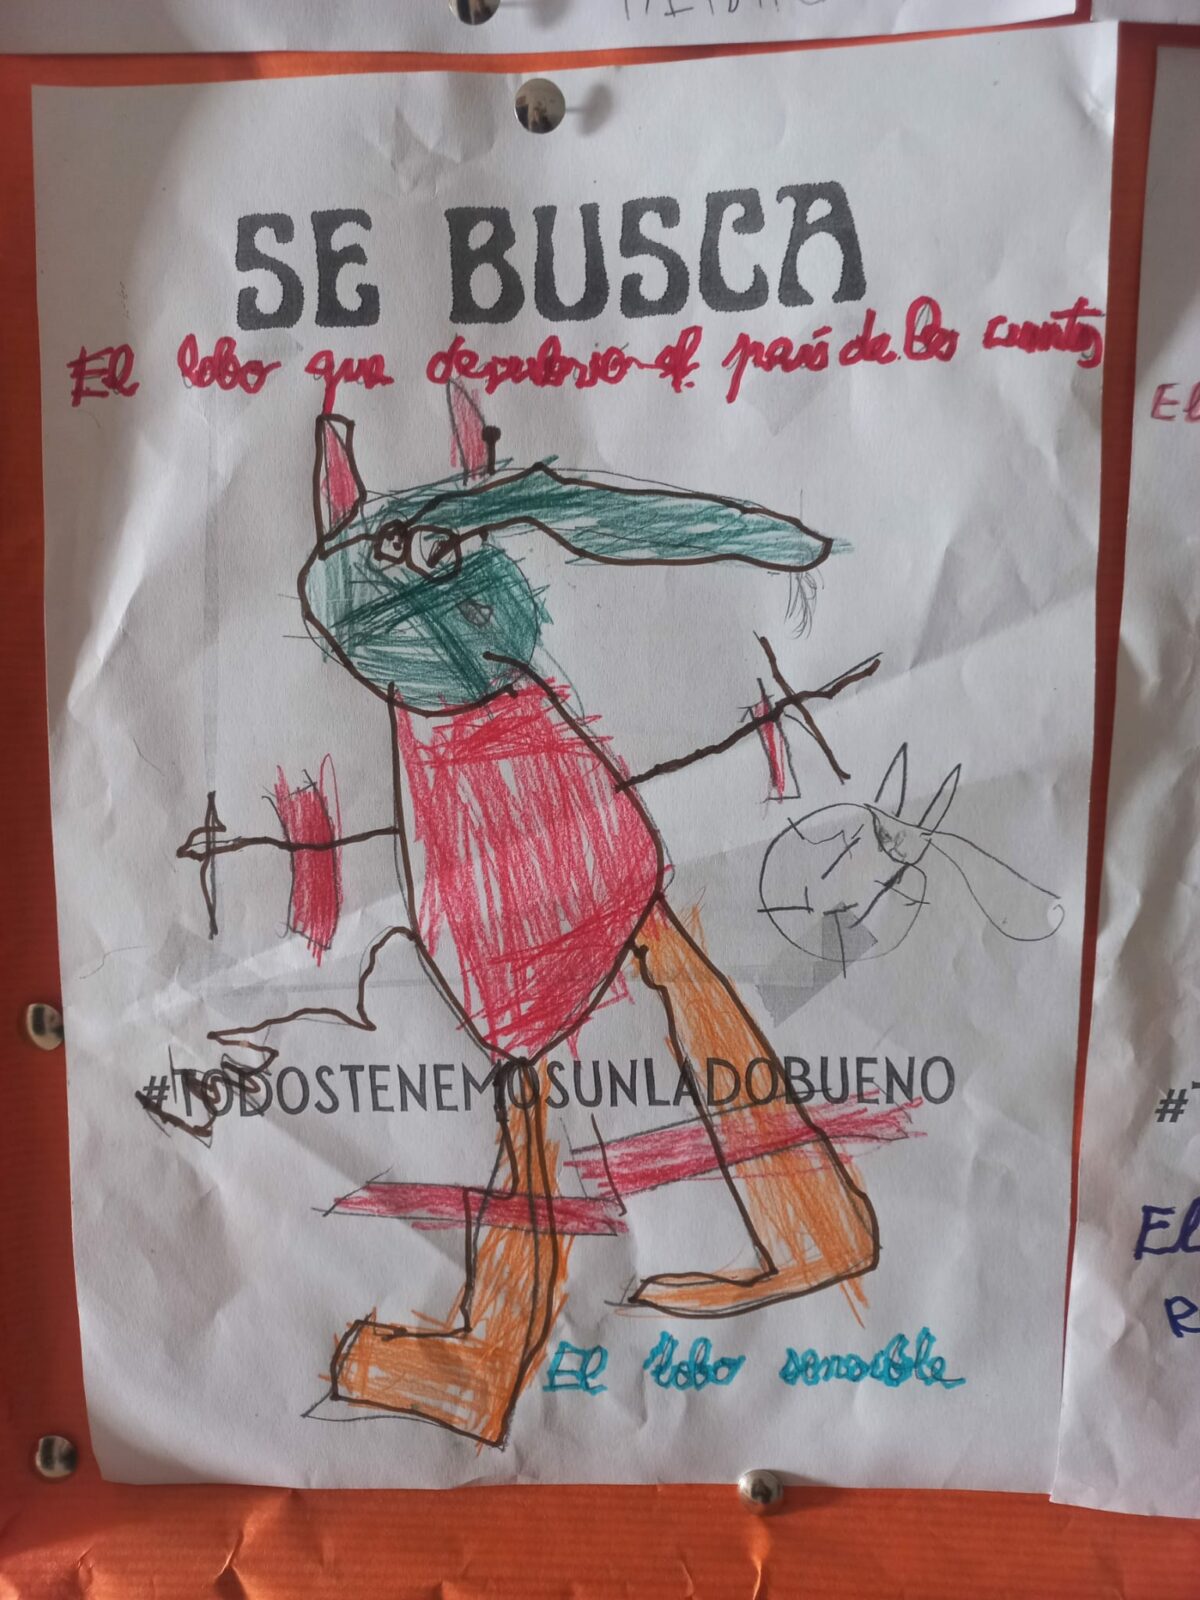 SE BUSCA
El lobo que descubrio el país de los cuentos
#TODOSTENEMOSUNLADOBUENO
El lobo sensible
El
#T
El
R